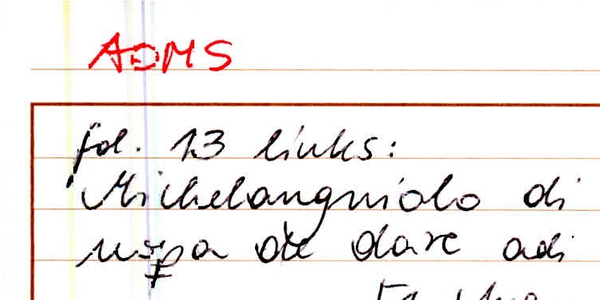 ADMS
fol. 13 links:
Michelangniolo di
dare adi